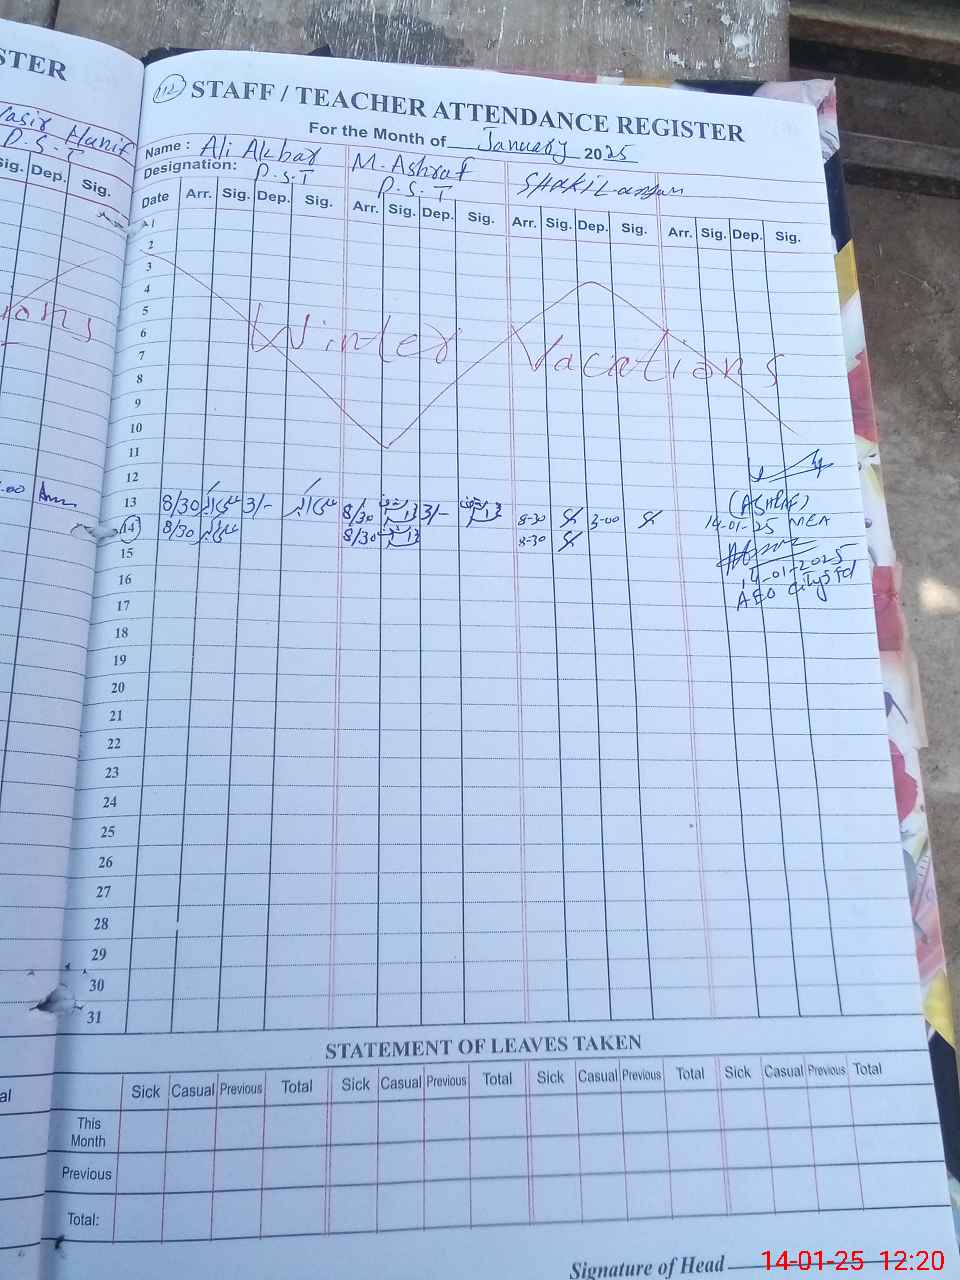 STER
Yasir Hanif
P.S.T
Sig. Dep. Sig.
ions
.00
al
12
STAFF / TEACHER ATTENDANCE REGISTER
For the Month of January 2025
Name : Ali Akbar M. Ashraf
Designation: P.S.T P.S.T
Date Arr. Sig. Dep. Sig. Arr. Sig. Dep. Sig. Arr. Sig. Dep. Sig. Arr. Sig. Dep. Sig.
1
2
3
4
5
6
7
8
9
10
11
Winter Vacations
12
13 8/30 علی اکبر 3/- علی اکبر 8/30 اشرف 3/- اشرف 8-30 3-00
14 8/30 علی اکبر 8/30 اشرف 8-30
(ASHRAF)
14-01-25 MEA
14-01-2025
AEO
15
16
17
18
19
20
21
22
23
24
25
26
27
28
29
30
31
STATEMENT OF LEAVES TAKEN
Sick Casual Previous Total Sick Casual Previous Total Sick Casual Previous Total Sick Casual Previous Total
This Month
Previous
Total:
Signature of Head
14-01-25 12:20